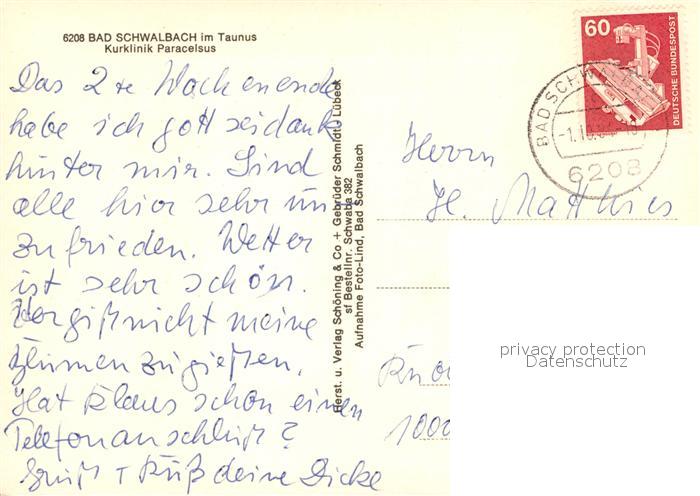 6208 BAD SCHWALBACH im Taunus
Kurklinik Paracelsus
Das 2te Wochenende
habe ich gott seidank
hinter mir. Sind
alle hier sehr un
zufrieden. Wetter
ist sehr schön.
Vergiß nicht meine
Blumen zu gießen.
Hat Klaus schon einen
Telefonanschluß?
Gruß + Kuß deine Dicke
Herst. u. Verlag Schöning & Co + Gebrüder Schmidt, Lübeck
sf Bestellnr. Schwaba 382
Aufnahme Foto-Lind, Bad Schwalbach
60
DEUTSCHE BUNDESPOST
BAD SCHW
6208
Herrn
H. Matthies
1000
privacy protection
Datenschutz